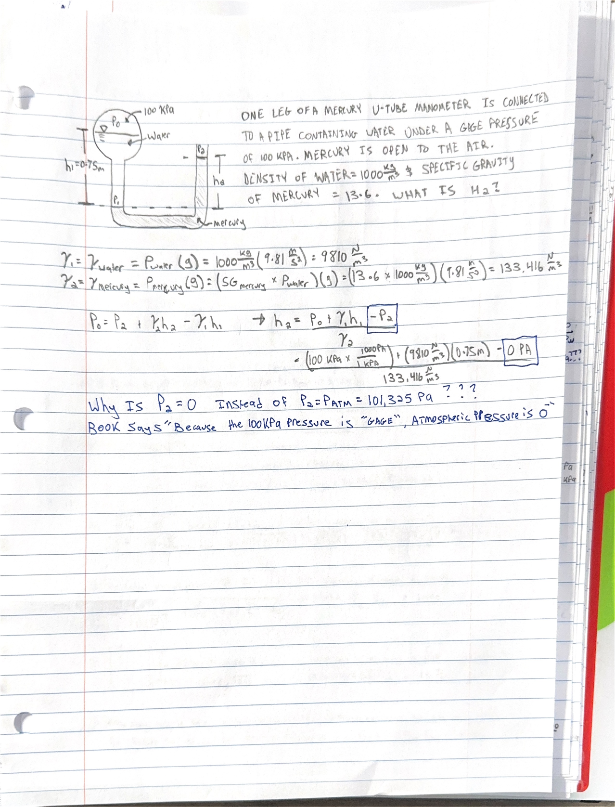 100 KPa
P₀
Water
P₂
h₁=0.75m
h₂
P₁
mercury
ONE LEG OF A MERCURY U-TUBE MANOMETER IS CONNECTED
TO A PIPE CONTAINING WATER UNDER A GAGE PRESSURE
OF 100 KPA. MERCURY IS OPEN TO THE AIR.
DENSITY OF WATER = 1000 kg/m³ & SPECIFIC GRAVITY
OF MERCURY = 13.6. WHAT IS H2?
γ₁ = γwater = Pwater (g) = 1000 kg/m³ (9.81 m/s²) = 9810 N/m³
γ₂ = γmercury = Pmercury (g) = (SG mercury × Pwater)(g) = (13.6 × 1000 kg/m³)(9.81 m/s²) = 133,416 N/m³
P₀ = P₂ + γ₂h₂ - γ₁h₁ → h₂ = P₀ + γ₁h₁ - P₂
γ₂
= (100 KPa × 1000PA/1 KPA) + (9810 N/m³)(0.75m) - 0 PA
133,416 N/m³
Why Is P₂=0 Instead of P₂=PATM = 101,325 Pa ? ? ?
BOOK Says "Because the 100KPa Pressure is "GAGE", ATmospheric PRessure is 0"
Pa
KPa